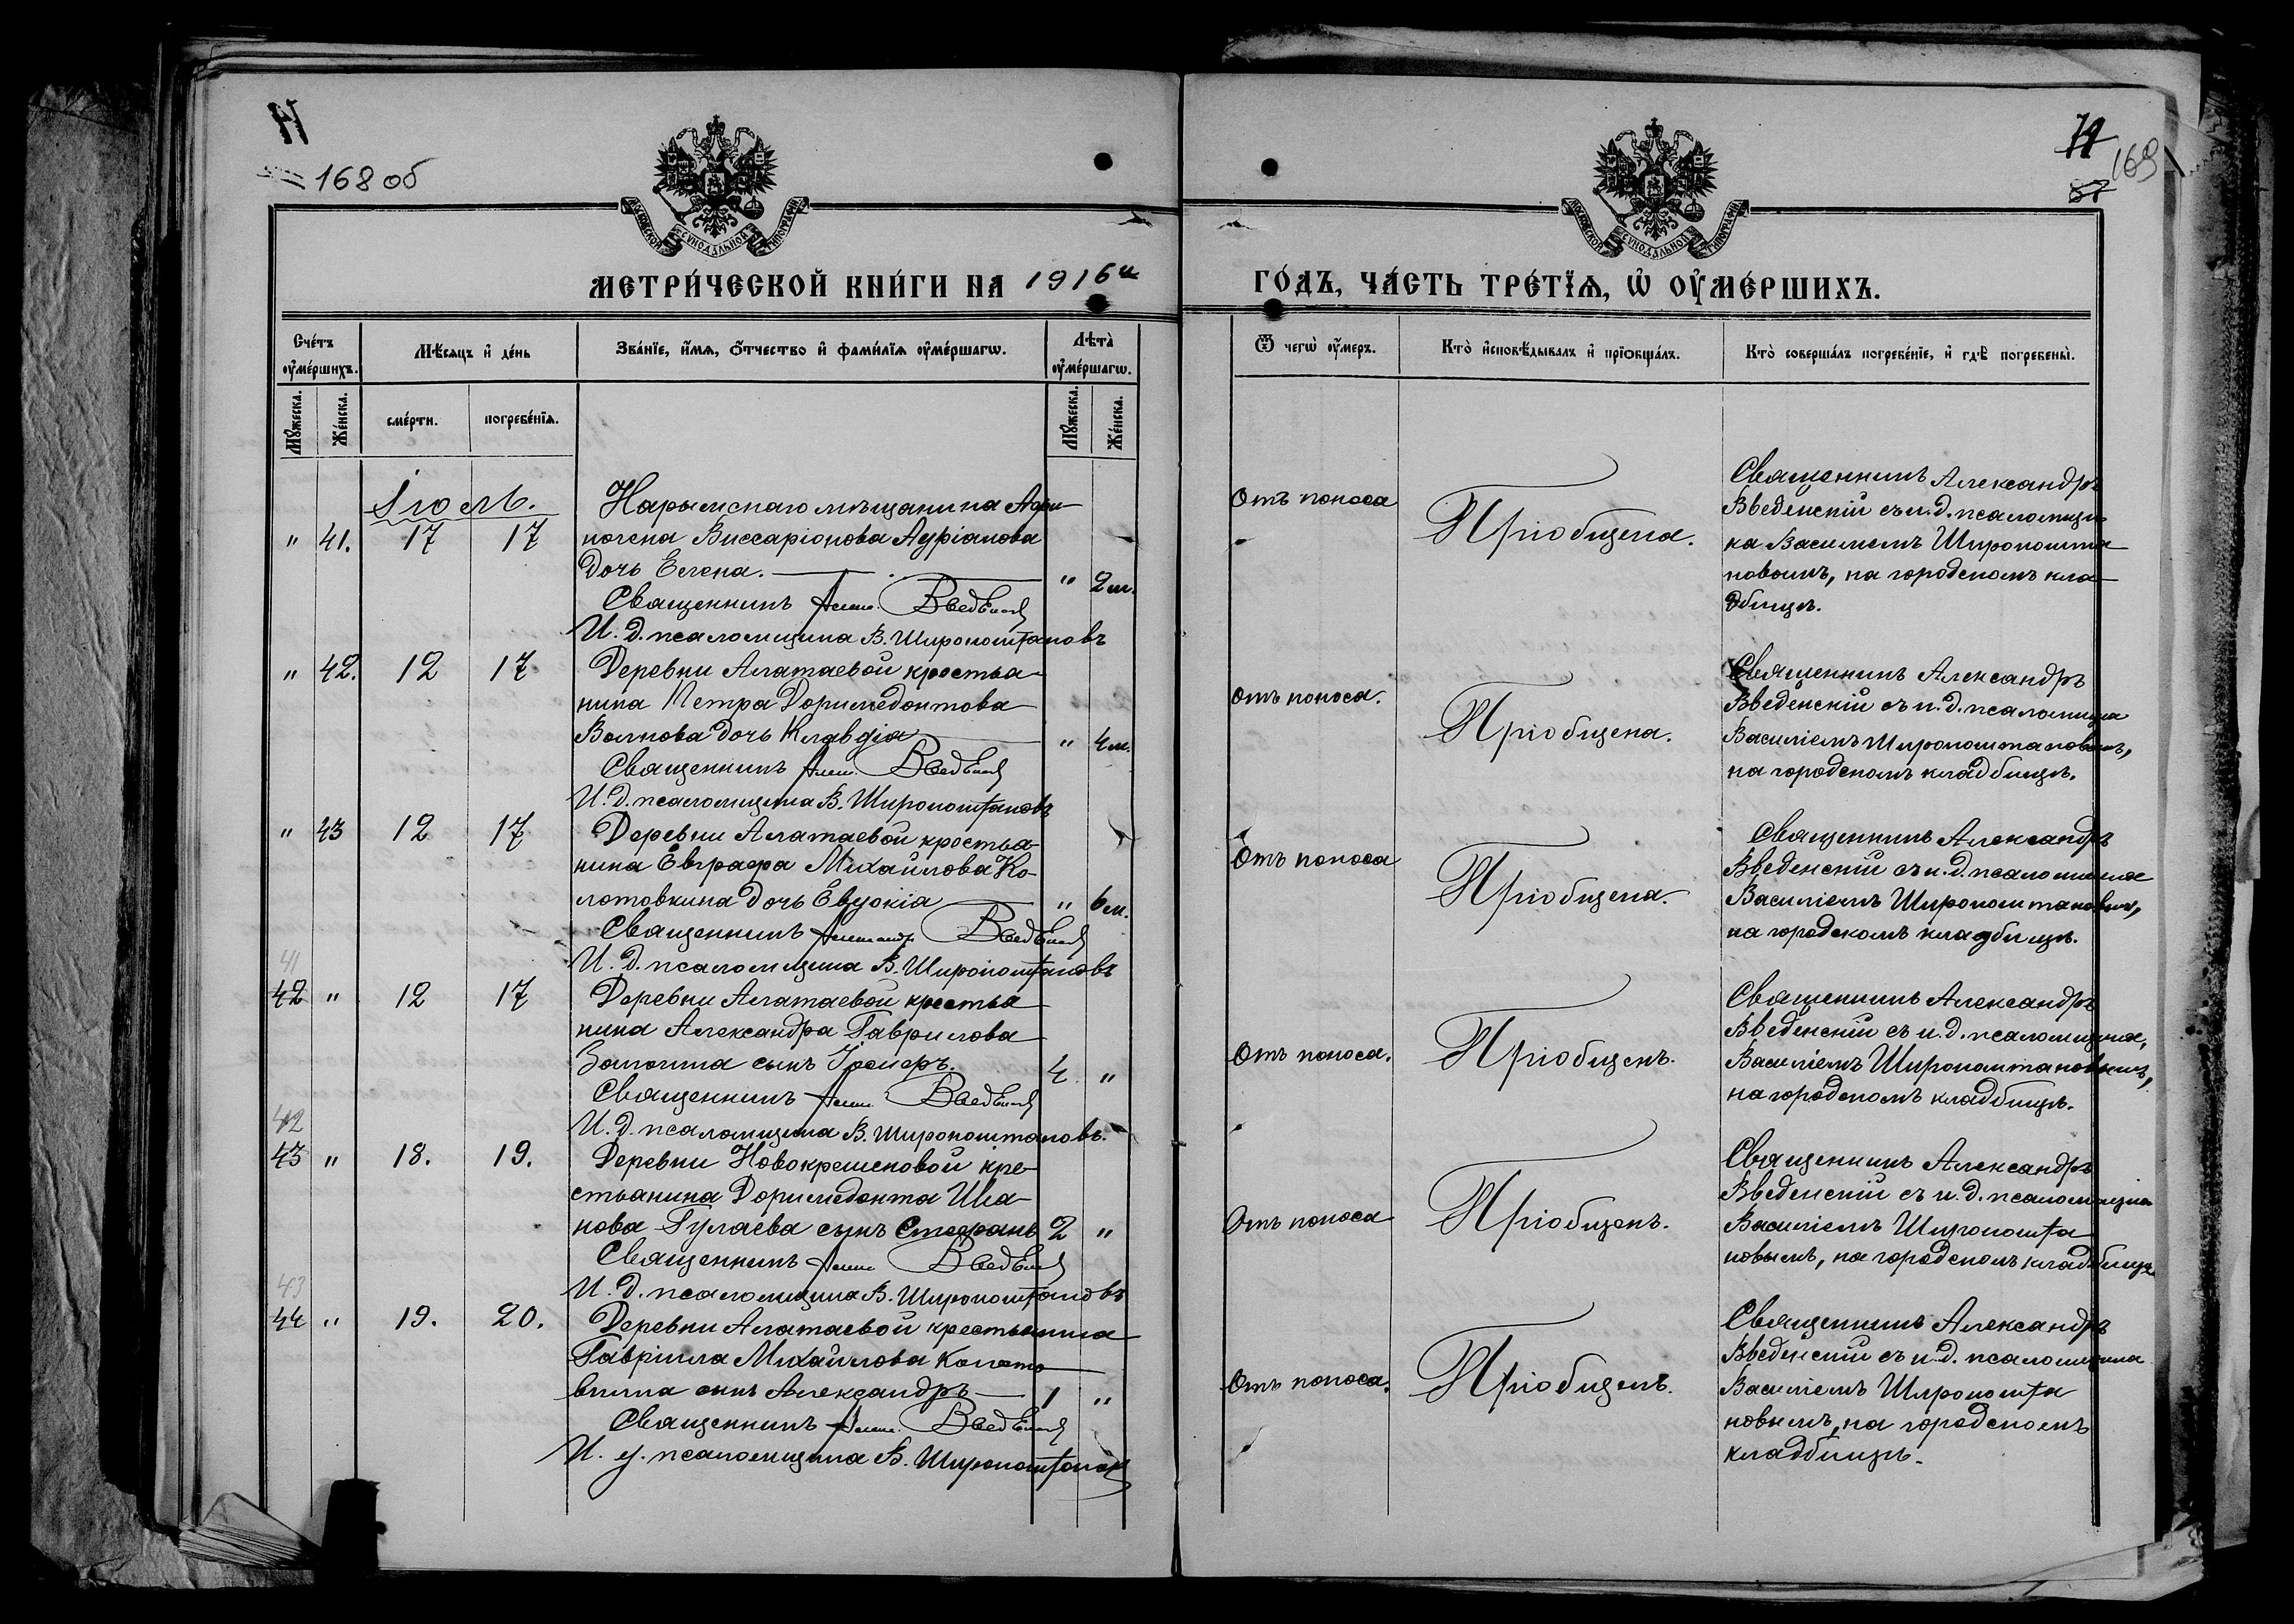 168 об
169
МЕТРИ́ЧЕСКОЙ КНИ́ГИ НА 1916й
ГО́ДЪ, ЧА́СТЬ ТРЕ́ТЇѦ, Ѡ҆ ОУ҆МЕ́РШИХЪ.
МОСКОВСКОЙ СУНОДАЛЬНОЙ ТИПОГРАФІИ
МОСКОВСКОЙ СУНОДАЛЬНОЙ ТИПОГРАФІИ
Сче́тъ оу҆ме́ршихъ.
Мѣ́сяцъ и҆ де́нь
Зва́нїе, и҆́мѧ, ѻ҆́тчество и҆ фами́лїѧ оу҆ме́ршагѡ.
Лѣта̀ оу҆ме́ршагѡ.
Ѿ чегѡ̀ оу҆́меръ.
Кто̀ и҆сповѣ́дывалъ и҆ прїѡбща́лъ.
Кто̀ соверша́лъ погребе́нїе, и҆ гдѣ̀ погребены̀.
Мꙋ́жеска.
Же́нска.
сме́рти.
погребе́нїѧ.
Мꙋ́жеска.
Же́нска.
Іюль.
" 41. 17 17
Нарымскаго мѣщанина
Виссаріонова Адріанова
дочь Елена. " 2 м.
Священникъ Алек. Введенскій
И. д. псаломщика В. Широкоштановъ
Отъ поноса
Пріобщена.
Священникъ Александръ
Введенскій съ и. д. псаломщи-
ка Василіемъ Широкошта-
новымъ, на городскомъ кла-
дбищѣ.
" 42. 12 17
Деревни Алатаевой крестья-
нина Петра Доримедонтова
Волкова дочь Клавдія " 4 м.
Священникъ Алек. Введенскій
И. д. псаломщика В. Широкоштановъ
Отъ поноса.
Пріобщена.
Священникъ Александръ
Введенскій съ и. д. псаломщика
Василіемъ Широкоштановымъ,
на городскомъ кладбищѣ.
" 43 12 17
Деревни Алатаевой крестья-
нина Евграфа Михайлова Ко-
лотовкина дочь Евдокія " 6 м.
Священникъ Александръ Введенскій
И. д. псаломщика В. Широкоштановъ
Отъ поноса
Пріобщена.
Священникъ Александръ
Введенскій съ и. д. псаломщика
Василіемъ Широкоштановымъ,
на городскомъ кладбищѣ.
41
42 " 12 17
Деревни Алатаевой крестья
нина Александра Гаврилова
сынъ 4 "
Священникъ Алек. Введенскій
И. д. псаломщика В. Широкоштановъ.
Отъ поноса.
Пріобщенъ.
Священникъ Александръ
Введенскій съ и. д. псаломщика,
Василіемъ Широкоштановымъ,
на городскомъ кладбищѣ.
42
43 " 18. 19.
Деревни Новокрещеновой кре-
стьянина Доримедонта Ива-
нова Гулаева сынъ Стефанъ 2 "
Священникъ Алек Введенскій
И. д. псаломщика В. Широкоштановъ
Отъ поноса
Пріобщенъ.
Священникъ Александръ
Введенскій съ и. д. псаломщика
Василіемъ Широкошта
новымъ, на городскомъ кладбищѣ
43
44 " 19. 20.
Деревни Алатаевой крестьянина
Гавріила Михайлова Колото
вкина сынъ Александръ 1 "
Священникъ Алек. Введенскій
И. д. псаломщика В. Широкоштановъ
Отъ поноса.
Пріобщенъ.
Священникъ Александръ
Введенскій съ и. д. псаломщика
Василіемъ Широкошта
новымъ, на городскомъ
кладбищѣ.